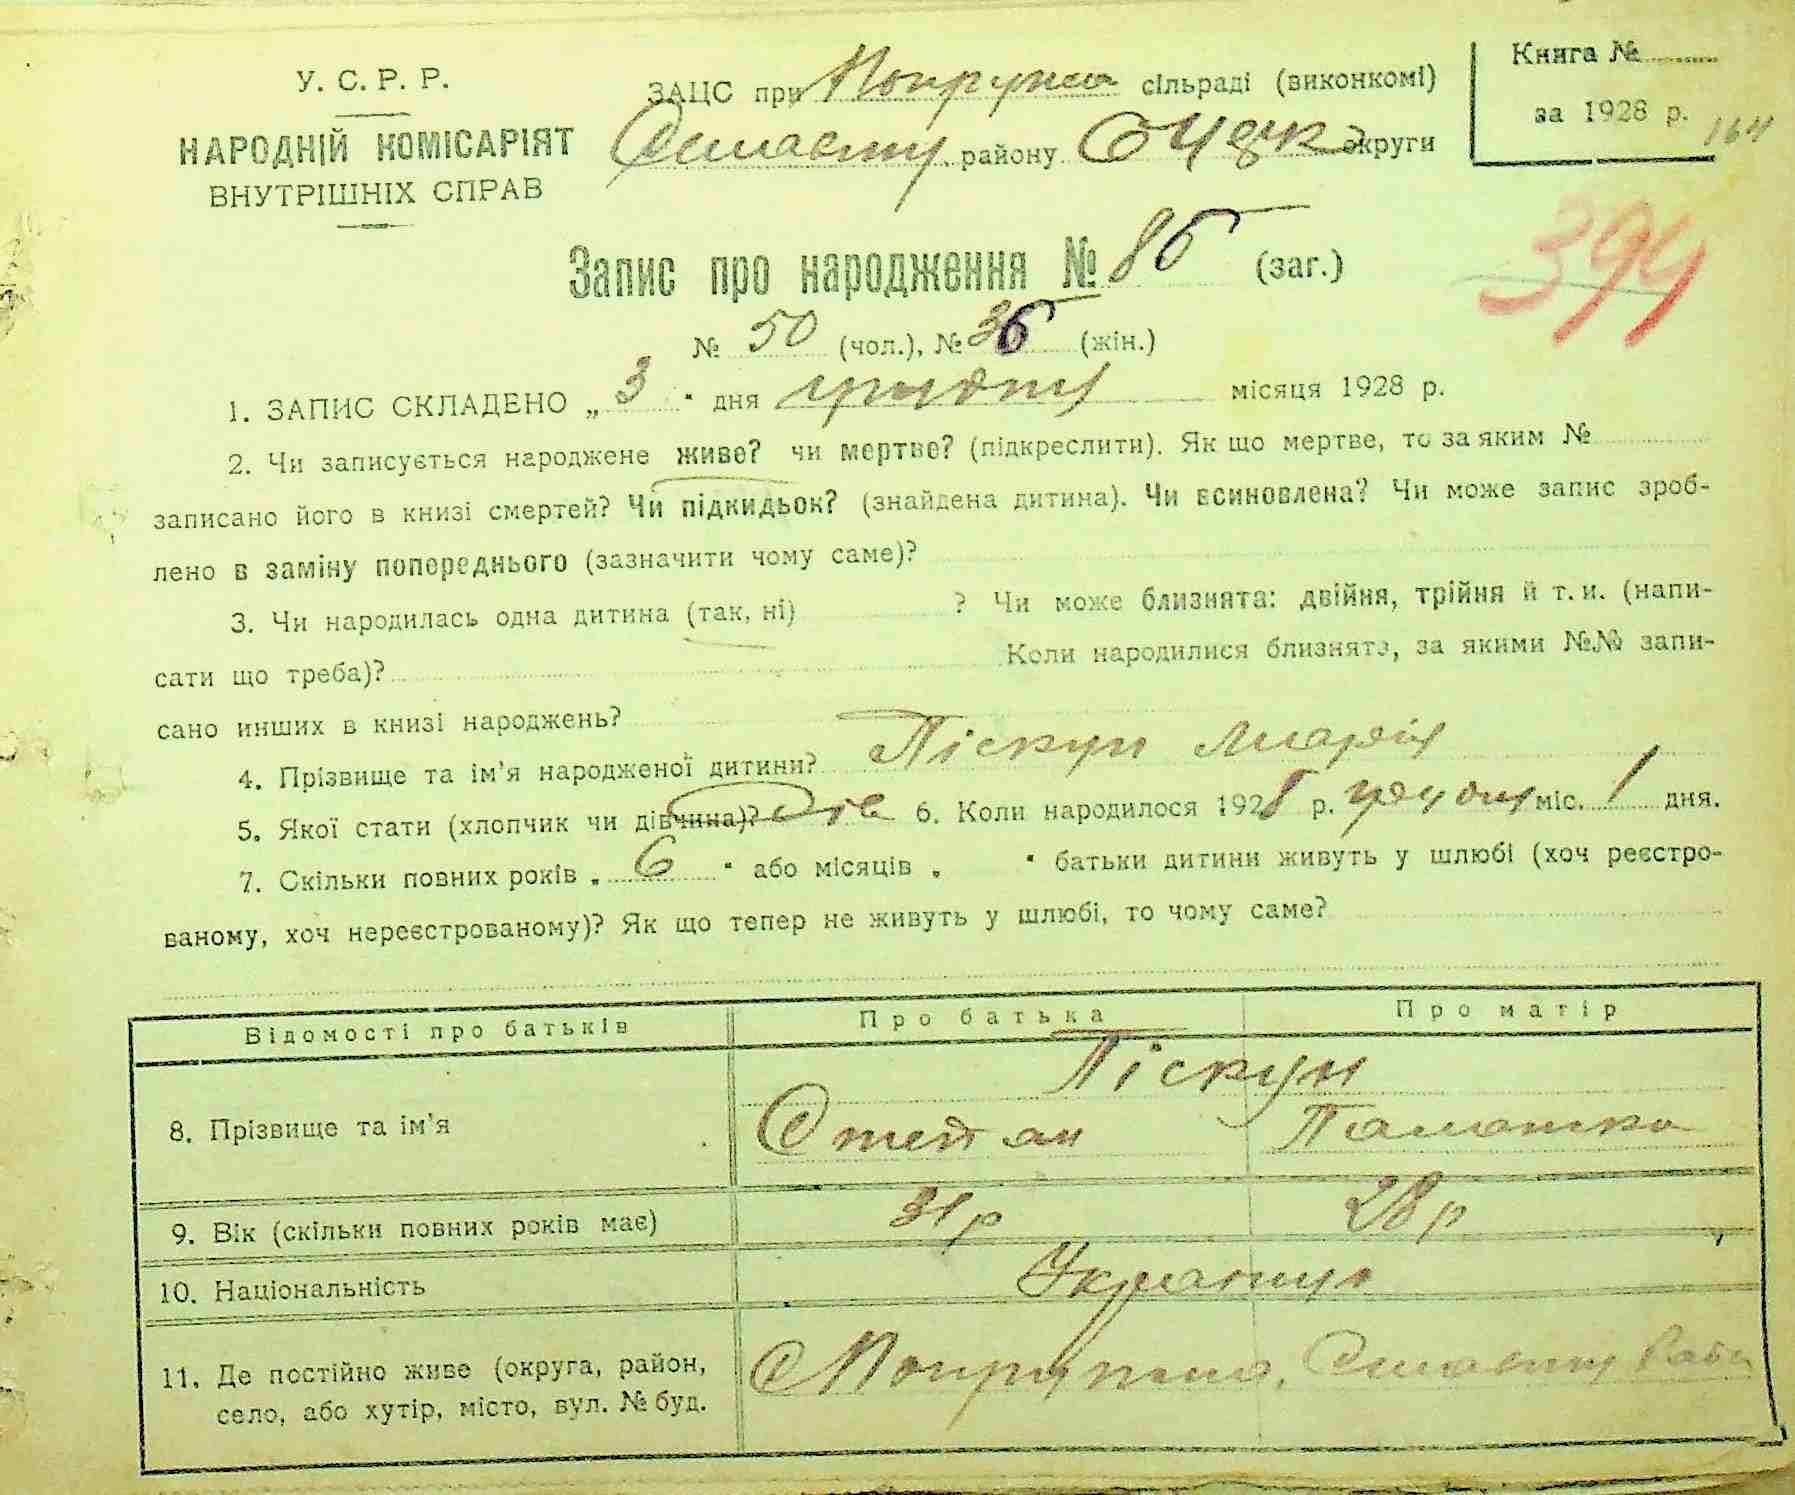 У. С. Р. Р.
НАРОДНІЙ КОМІСАРІЯТ
ВНУТРІШНІХ СПРАВ
ЗАЦС при сільраді (виконкомі)
району округи
Книга №
за 1928 р. 164
394
Запис про народження № 85 (заг.)
№ 50 (чол.), № 35 (жін.)
1. ЗАПИС СКЛАДЕНО „ 3 " дня грудня місяця 1928 р.
2. Чи записується народжене живе? чи мертве? (підкреслити). Як що мертве, то за яким №
записано його в книзі смертей? Чи підкидьок? (знайдена дитина). Чи всиновлена? Чи може запис зроб-
лено в заміну попереднього (зазначити чому саме)?
3. Чи народилась одна дитина (так, ні) ? Чи може близнята: двійня, трійня й т. и. (напи-
сати що треба)? Коли народилися близнята, за якими №№ запи-
сано инших в книзі народжень?
4. Прізвище та ім'я народженої дитини? Піскун Марія
5. Якої стати (хлопчик чи дівчина)? 6. Коли народилося 1928 р. грудня міс. 1 дня.
7. Скільки повних років „ 6 " або місяців „ " батьки дитини живуть у шлюбі (хоч реєстро-
ваному, хоч нереєстрованому)? Як що тепер не живуть у шлюбі, то чому саме?
Відомості про батьків Про батька Про матір
8. Прізвище та ім'я Піскун
Степан Палашка
9. Вік (скільки повних років має) 31 р 28 р
10. Національність
11. Де постійно живе (округа, район,
село, або хутір, місто, вул. № буд.